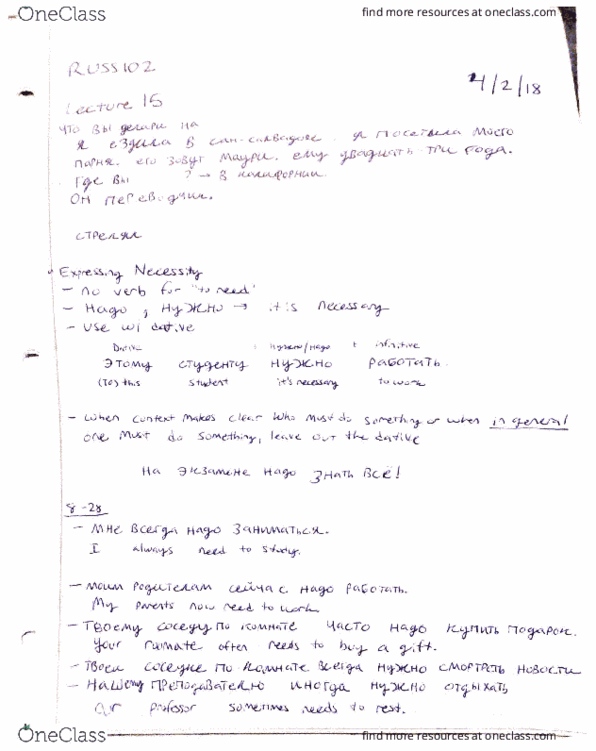 OneClass
find more resources at oneclass.com
RUSS102
4/2/18
Lecture 15
что вы делали на
я ездила в сан-салвадоре. я посетила моего
парня. его зовут Маури. ему двадцать три года.
где вы ? → в калифорнии.
он переводчик.
стрелял
Expressing Necessity
- no verb for "to need"
- надо, нужно → it is necessary
- use w/ dative
Dative + нужно/надо + infinitive
этому студенту нужно работать.
(to) this student it's necessary to work
- when context makes clear who must do something or when in general
one must do something, leave out the dative
На экзамене надо знать всё!
8-28
- мне всегда надо заниматься.
I always need to study.
- моим родителам сейчас надо работать.
My parents now need to work
- Твоему соседу по комнате часто надо купить подарок.
your roomate often needs to buy a gift.
- твоей соседке по комнате всегда нужно смортать новости
- нашему преподавателю иногда нужно отдыхать
our professor sometimes needs to rest.
OneClass
find more resources at oneclass.com